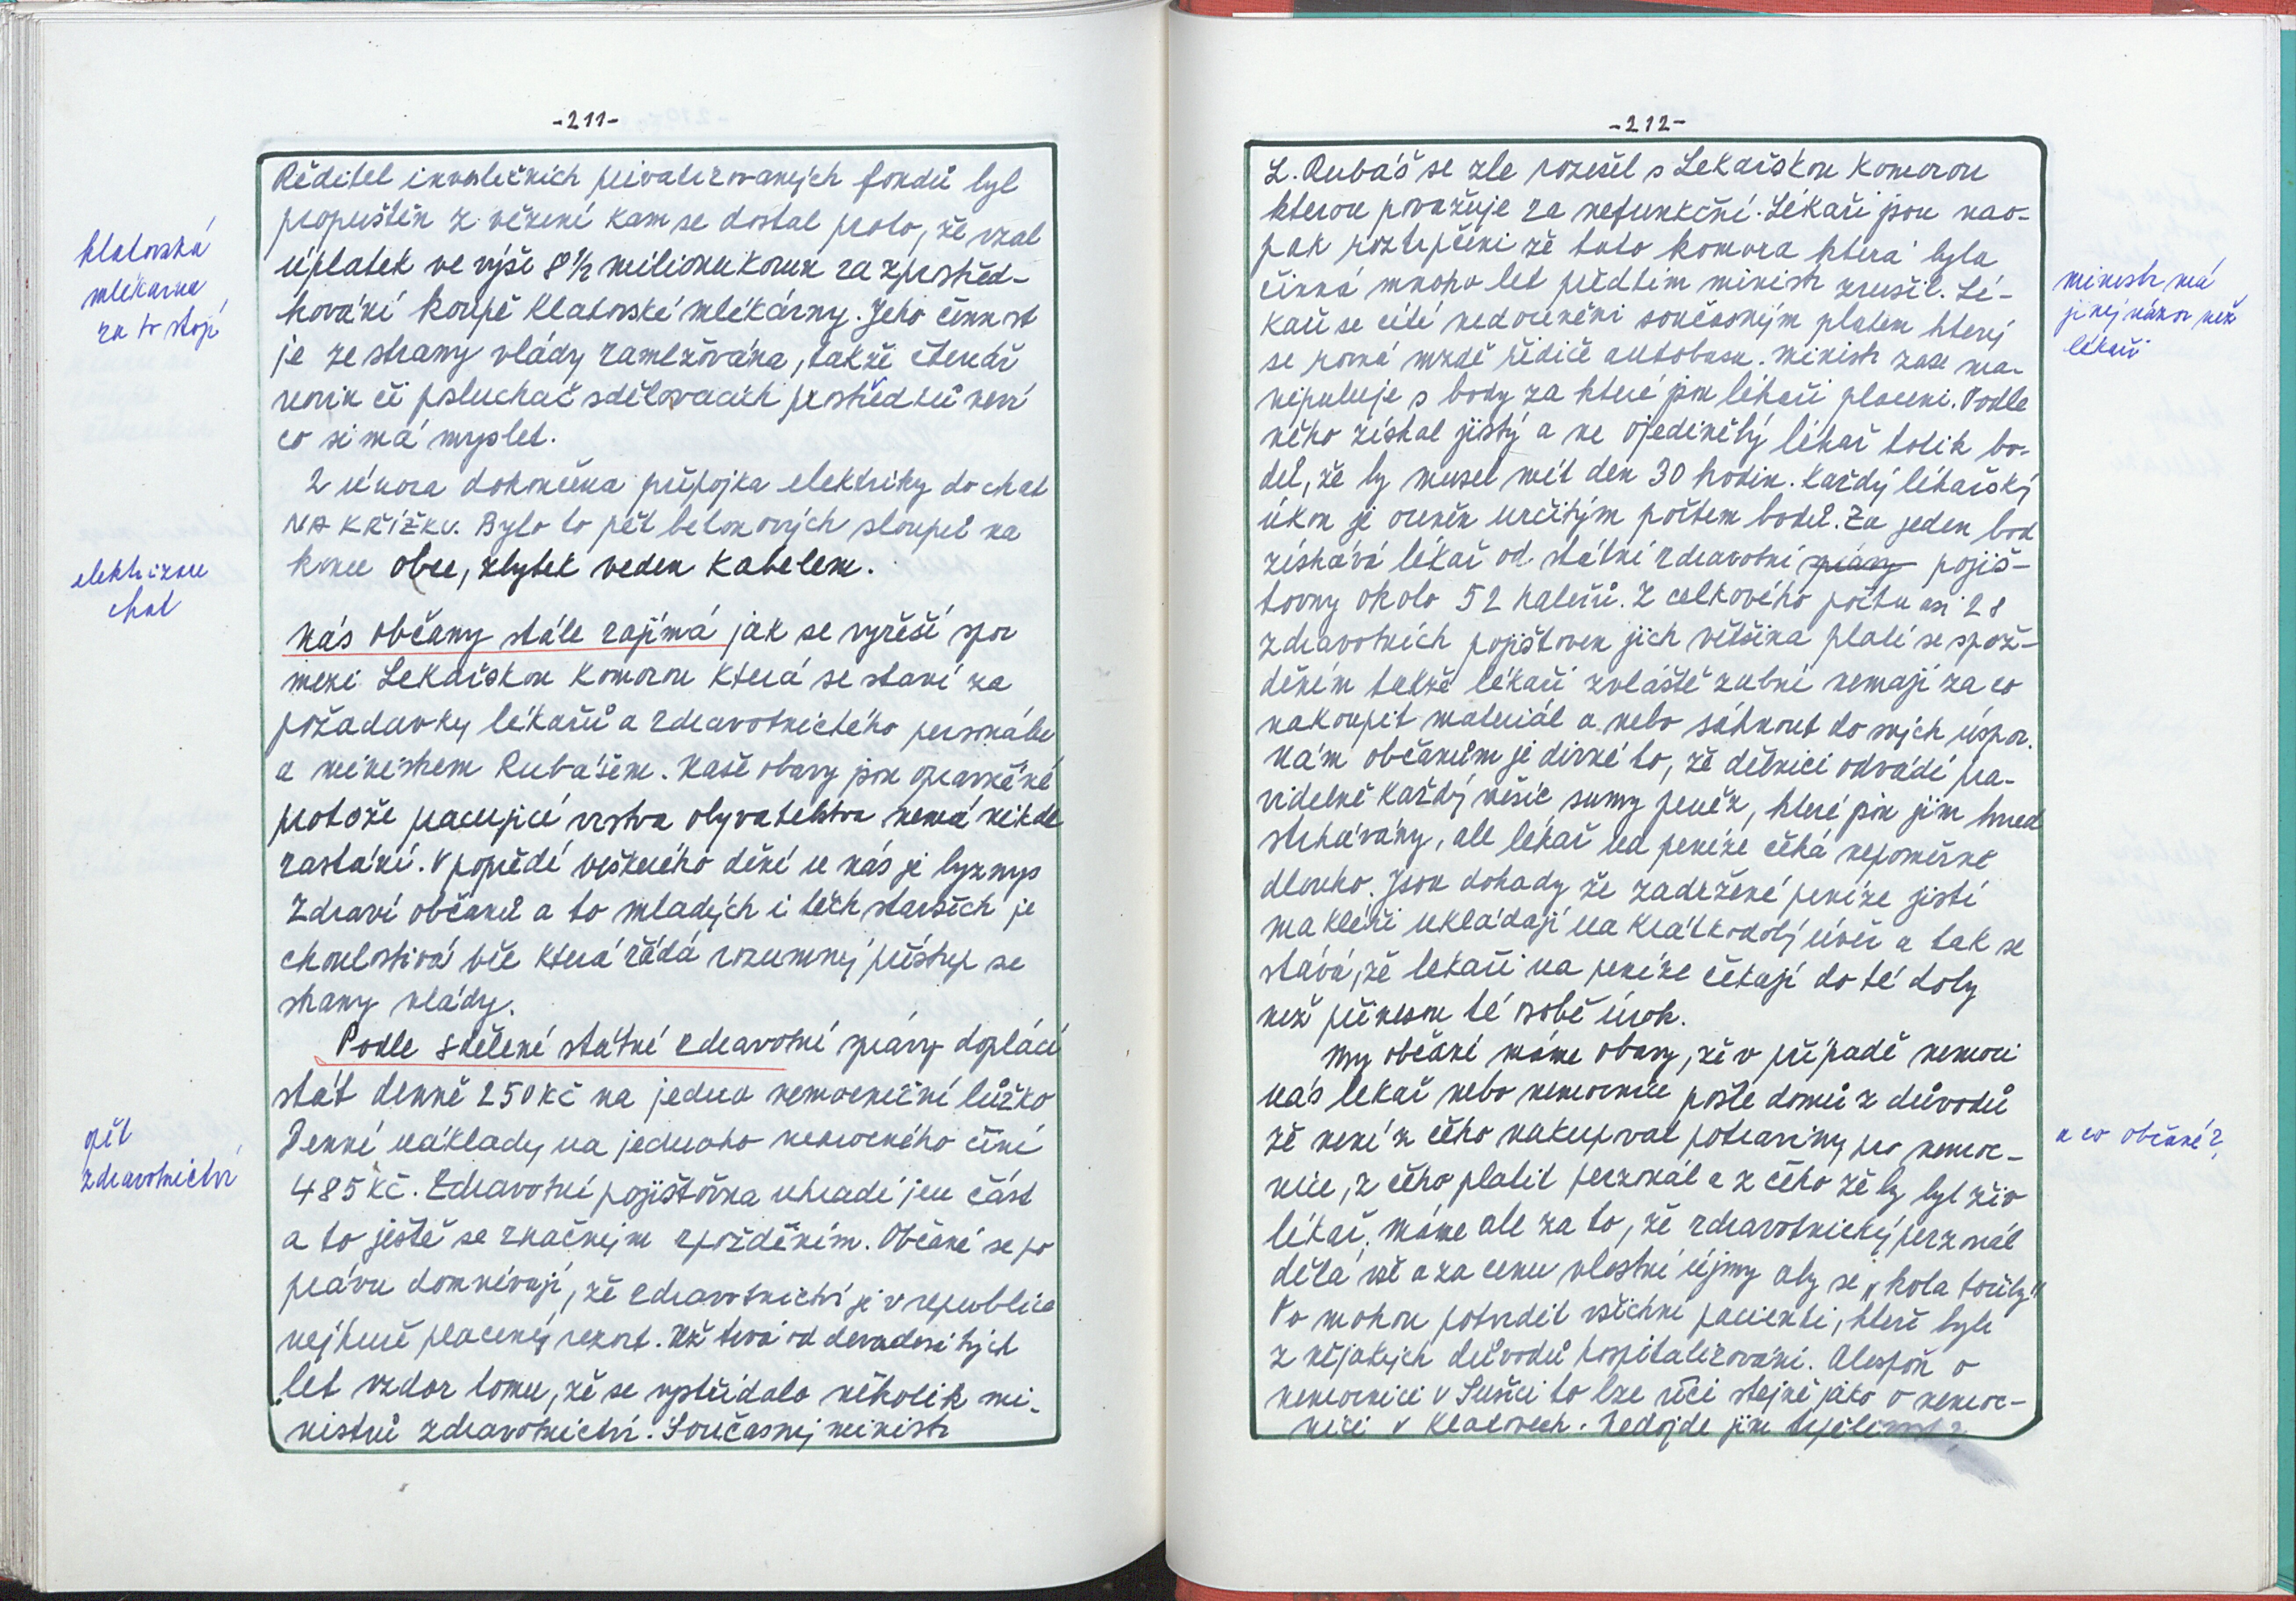 -211-
klatovská
mlékárna
za to stojí
Ředitel investičních privatizovaných fondů byl
propuštěn z vězení kam se dostal proto, že vzal
úplatek ve výši 8 1/2 milionu korun za zprostřed-
kování koupě Klatovské mlékárny. Jeho činnost
je ze strany vlády zamlžována, takže čtenář
novin či posluchač sdělovacích prostředků neví
co si má myslet.
2 února dokončena přípojka elektriky do chat
NA KŘÍŽKU. Bylo to pět betonových sloupů na
konci obce, zbytek veden kabelem.
elektrizace
chat
Nás občany stále zajímá jak se vyřeší spor
mezi Lékařskou komorou která se staví za
požadavky lékařů a zdravotnického personálu
a ministrem Rubášem. Naše obavy jsou oprávněné
protože pracující vrstva obyvatelstva nemá nikde
zastání. V popředí veškerého dění u nás je byznys
Zdraví občanů a to mladých i těch starších je
choulostivá věc která žádá rozumný přístup se
strany vlády.
Podle sdělení státní zdravotní zprávy doplácí
stát denně 250 Kč na jedno nemocniční lůžko
Denní náklady na jednoho nemocného činí
485 Kč. Zdravotní pojištovna uhradí jen část
a to ještě se značným zpožděním. Občané se po
právu domnívají, že zdravotnictví je v republice
nejhůře placený rezort. Už trvá od devadesátých
let vzdor tomu, že se vystřídalo několik mi-
nistrů zdravotnictví. Současný ministr
opět
zdravotnictví
-212-
L. Rubáš se zle rozešel s Lékařskou komorou
kterou považuje za nefunkční. Lékaři jsou nao-
pak roztrpčeni že tato komora která byla
činná mnoho let předtím ministr zrušil. Lé-
kaři se cítí nedoceněni současným platem který
se rovná mzdě řidiče autobusu. Ministr zase ma-
nipuluje s body za které jsou lékaři placeni. Podle
něho získal jistý a ne ojedinělý lékař tolik bo-
dů, že by musel mít den 30 hodin. Každý lékařský
úkon je oceněn určitým počtem bodů. Za jeden bod
získává lékař od státní zdravotní zprávy pojiš-
tovny okolo 52 haléřů. Z celkového počtu asi 28
zdravotních pojištoven jich většina platí se spož-
děním takže lékaři zvláště zubní nemají za co
nakoupit materiál a nebo sáhnout do svých úspor.
Nám občanům je divné to, že dělníci odvádí pra-
videlně každý měsíc sumy peněz, které jsou jim hned
strhávány, ale lékař na peníze čeká nepoměrně
dlouho. Jsou dohady že zadržené peníze jistí
makléři ukládají na krátkodobý úvěr a tak se
stává, že lékaři na peníze čekají do té doby
než přinesou té osobě úrok.
My občané máme obavy, že v případě nemoci
nás lékař nebo nemocnice pošle domů z důvodů
že není z čeho nakupovat potraviny pro nemoc-
nice, z čeho platit perzonál a z čeho že by byl živ
lékař. Máme ale za to, že zdravotnický perzonál
dělá vše a za cenu vlastní újmy aby se „kola točily"
To mohou potvrdit všichni pacienti, kteří byli
z nějakých důvodů hospitalizováni. Alespoň o
nemocnici v Sušici to lze říci stejně jako o nemoc-
nici v Klatovech. Nedojde jim trpělivost?
ministr má
jiný názor než
lékaři
a co občané?